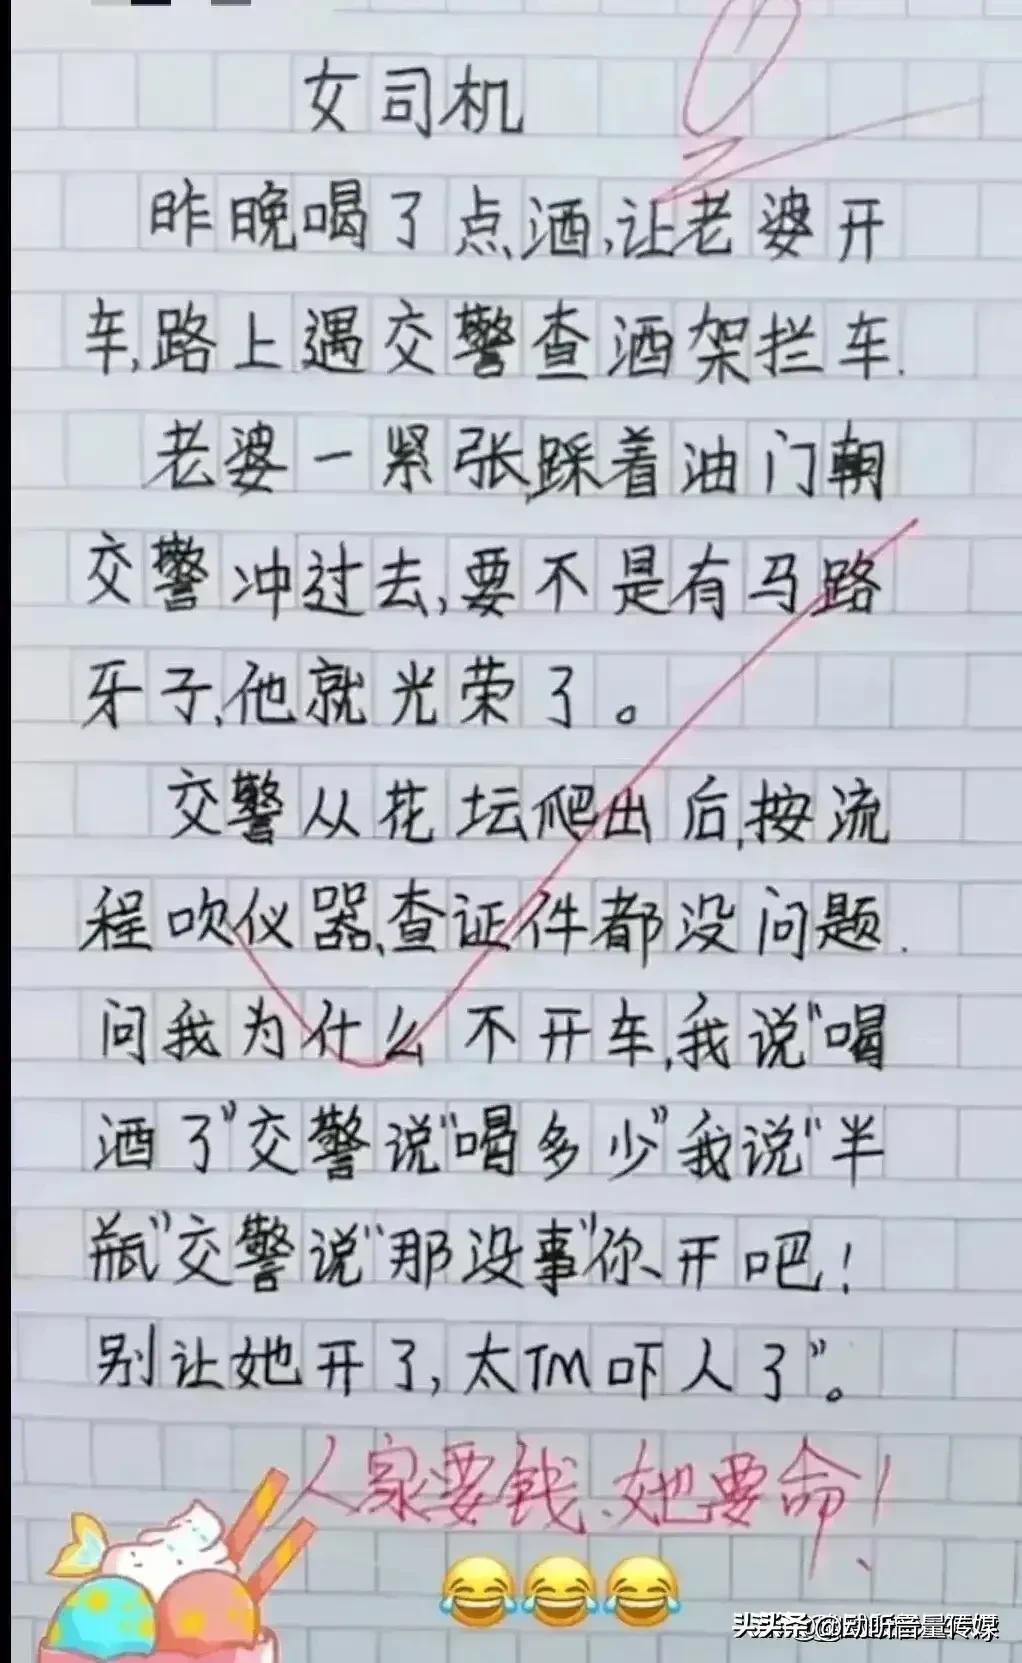 女司机
昨晚喝了点酒,让老婆开
车,路上遇交警查酒架拦车.
老婆一紧张,踩着油门朝
交警冲过去,要不是有马路
牙子,他就光荣了。
交警从花坛爬出后,按流
程吹仪器,查证件都没问题.
问我为什么不开车,我说"喝
酒了"交警说"喝多少"我说"半
瓶"交警说"那没事"你开吧!
别让她开了,太TM吓人了"。
人家要钱、她要命!
头条@动听音量传媒